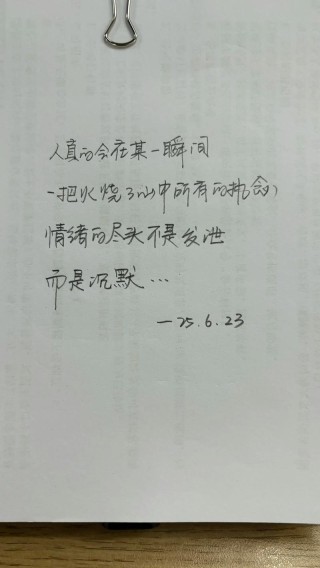 人真的会在某一瞬间
一把火烧了心中所有的执念,
情绪的尽头不是发泄
而是沉默…
—25.6.23